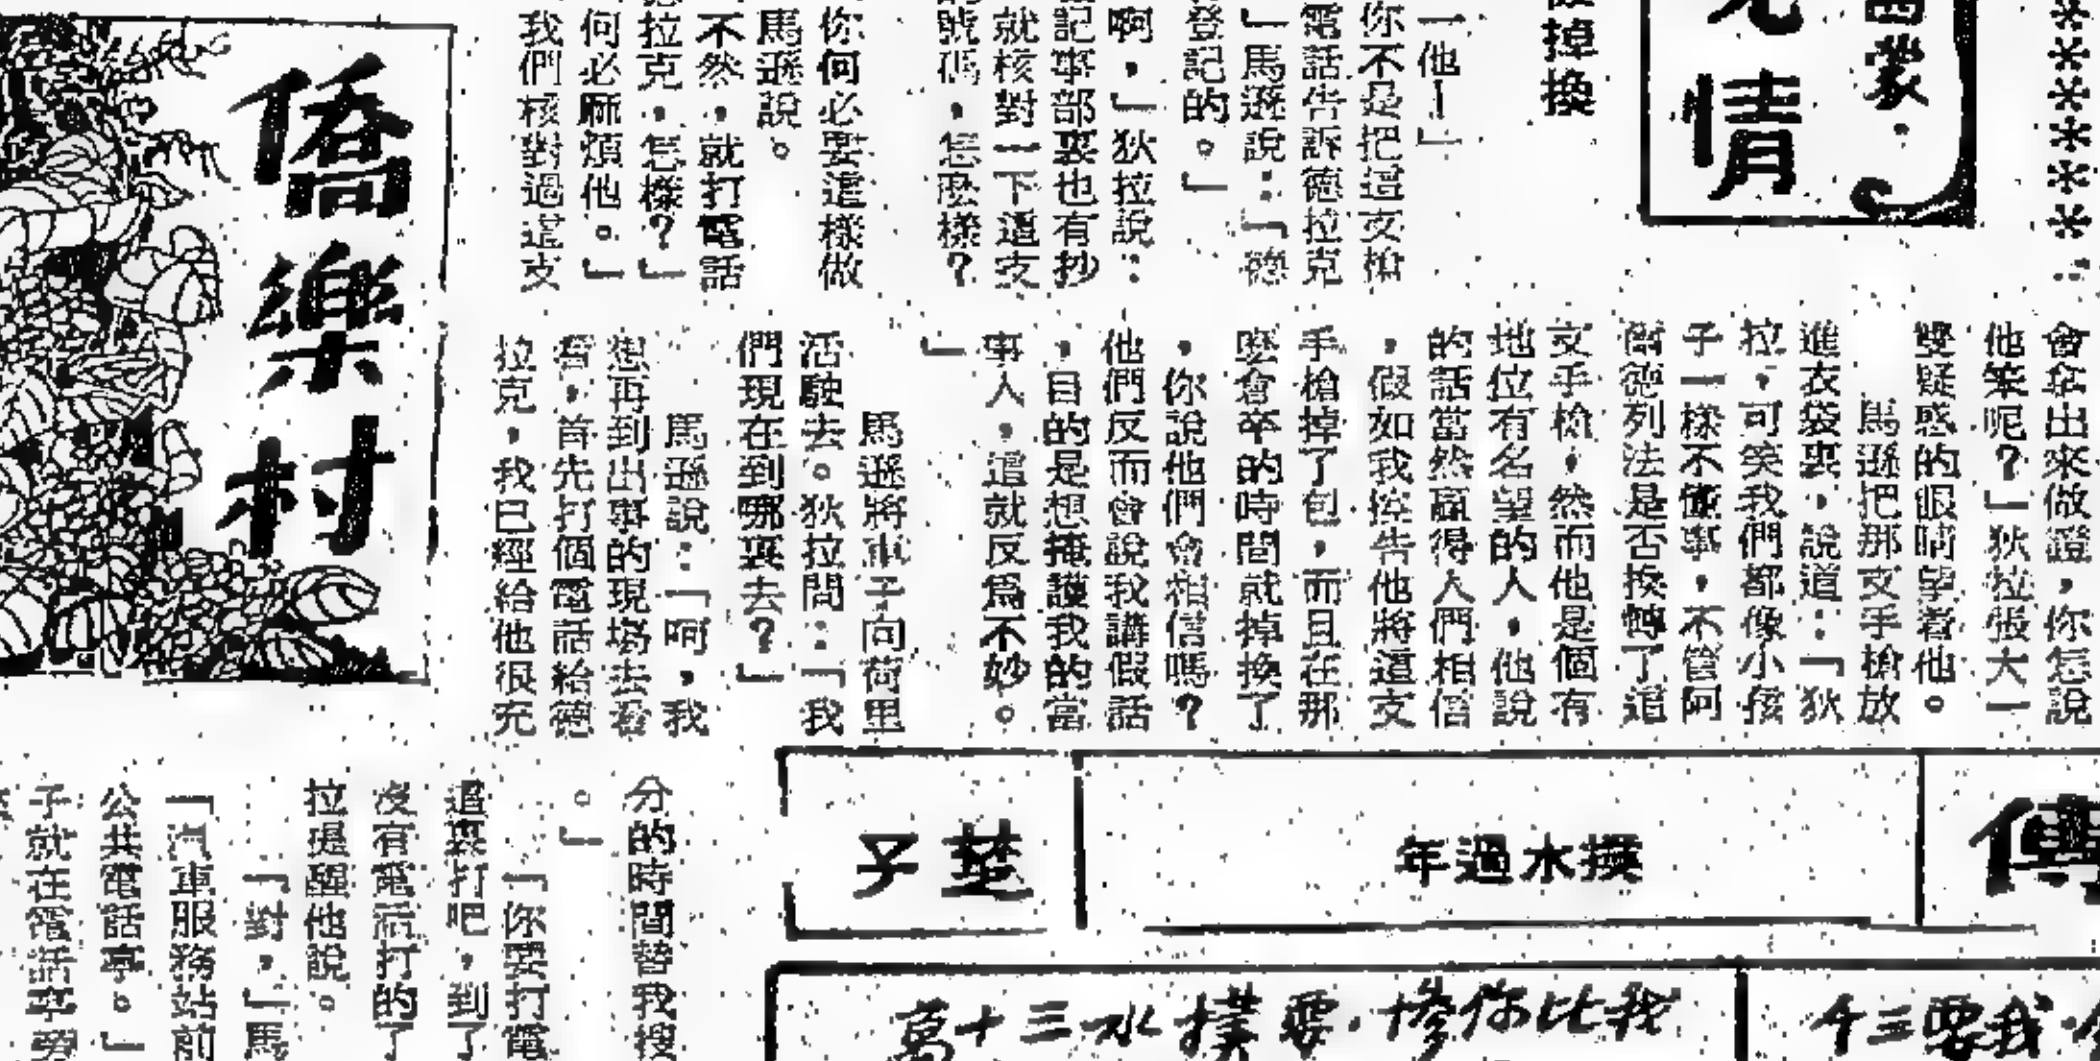 情
西蒙·
掉換
一他—」
你不是把這支槍
電話告訴德拉克
」馬遜說：「德
登記的。」
啊，」狄拉說：
記事部裏也有抄
就核對一下這支
號碼，怎麼樣？
你何必要這樣做
馬遜說。
不然，就打電話
拉克，怎樣？」
何必麻煩他。」
我們核對過這支
僑樂村
會拿出來做證，你怎說
他笨呢？」狄拉張大一
雙疑惑的眼睛望着他。
馬遜把那支手槍放
進衣袋裏，說道：「狄
拉，可笑我們都像小孩
子一樣不懂事，不管阿
爾德列法是否換轉了這
支手槍，然而他是個有
地位有名望的人，他說
的話當然贏得人們相信
，假如我控告他將這支
手槍掉了包，而且在那
麼倉卒的時間就掉換了
，你說他們會相信嗎？
他們反而會說我講假話
，目的是想掩護我的當
事人，這就反爲不妙。
」
馬遜將車子向荷里
活駛去。狄拉問：「我
們現在到哪裏去？」
馬遜說：「呵，我
想再到出事的現場去看
看，首先打個電話給德
拉克，我已經給他很充
分的時間替我搜
。」
「你要打電
這裏打吧，到了
沒有電話打的了
拉提醒他說。
「對，」馬
「汽車服務站前
公共電話亭。」
子就在電話亭旁
傳
年過水撰
子楚
萬十三水撲要，慘你比我
千三要我